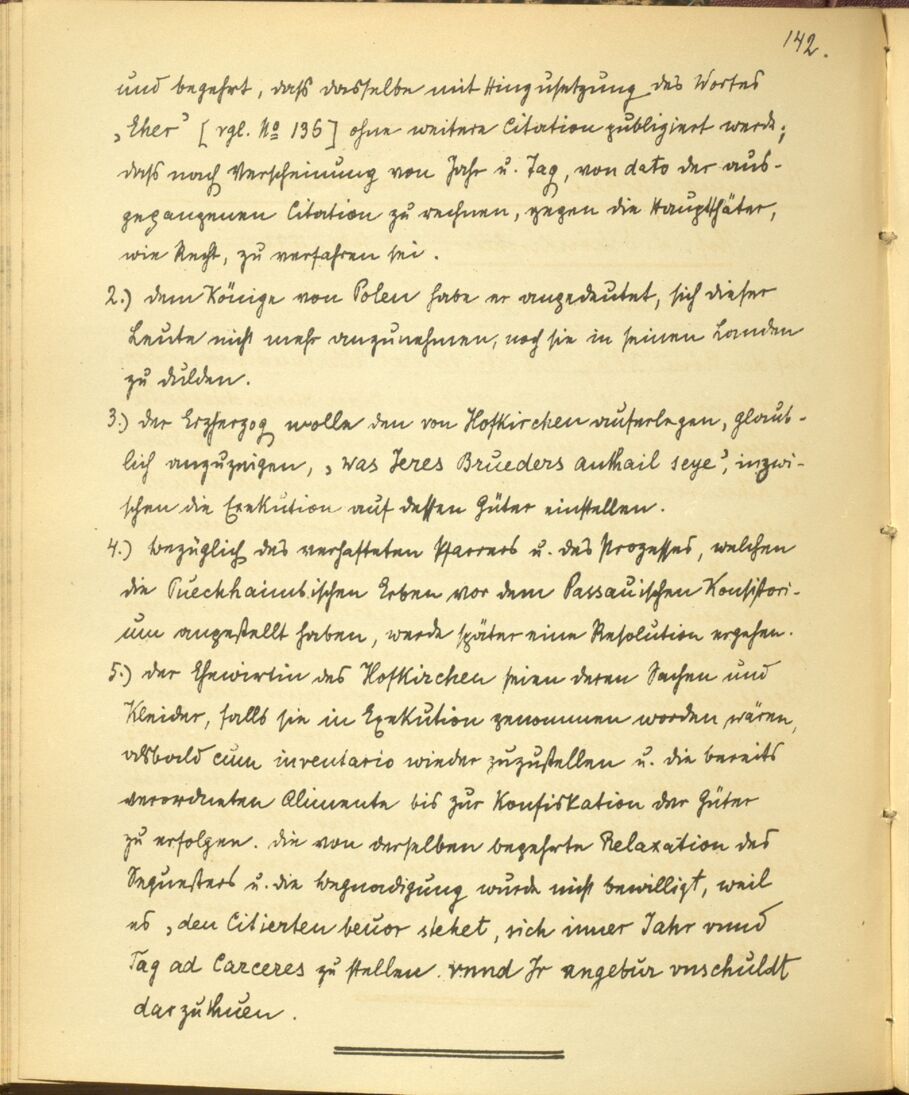 142.
und begehrt, daß dasselbe mit Hinzusetzung des Wortes
„Eher” [vgl. No 136] ohne weitere Citation publiziert werde;
daß nach Verscheinung von Jahr u. Tag, von dato der aus-
gegangenen Citation zu rechnen, gegen die Hauptthäter,
wie Recht, zu verfahren sei.
2.) dem Könige von Polen habe er angedeutet, sich dieser
Leute nicht mehr anzunehmen, noch sie in seinen Landen
zu dulden.
3.) der Erzherzog wolle den von Hofkirchen auferlegen, glaub-
lich anzuzeigen, „was Jeres Brueders anthail seye”, inzwi-
schen die Exekution auf dessen Güter einstellen.
4.) bezüglich des verhafteten Pfarrers u. des Prozesses, welchen
die Pueckhaimbischen Erben vor dem Passauischen Konsistori-
um angestellt haben, werde später eine Resolution ergehen.
5.) der Ehewirtin des Hofkirchen seien deren Sachen und
Kleider, falls sie in Exekution genommen worden wären,
alsbald cum inventario wieder zuzustellen u. die bereits
verordneten Alimente bis zur Konfiskation der Güter
zu erfolgen. die von derselben begehrte Relaxation des
Sequesters u. die Begnadigung wurde nicht bewilligt, weil
es „den Citierten beuor stehet, sich inner Jahr vnnd
Tag ad Carceres zu stellen vnnd Jr angebür vnschuldt
darzuthuen.